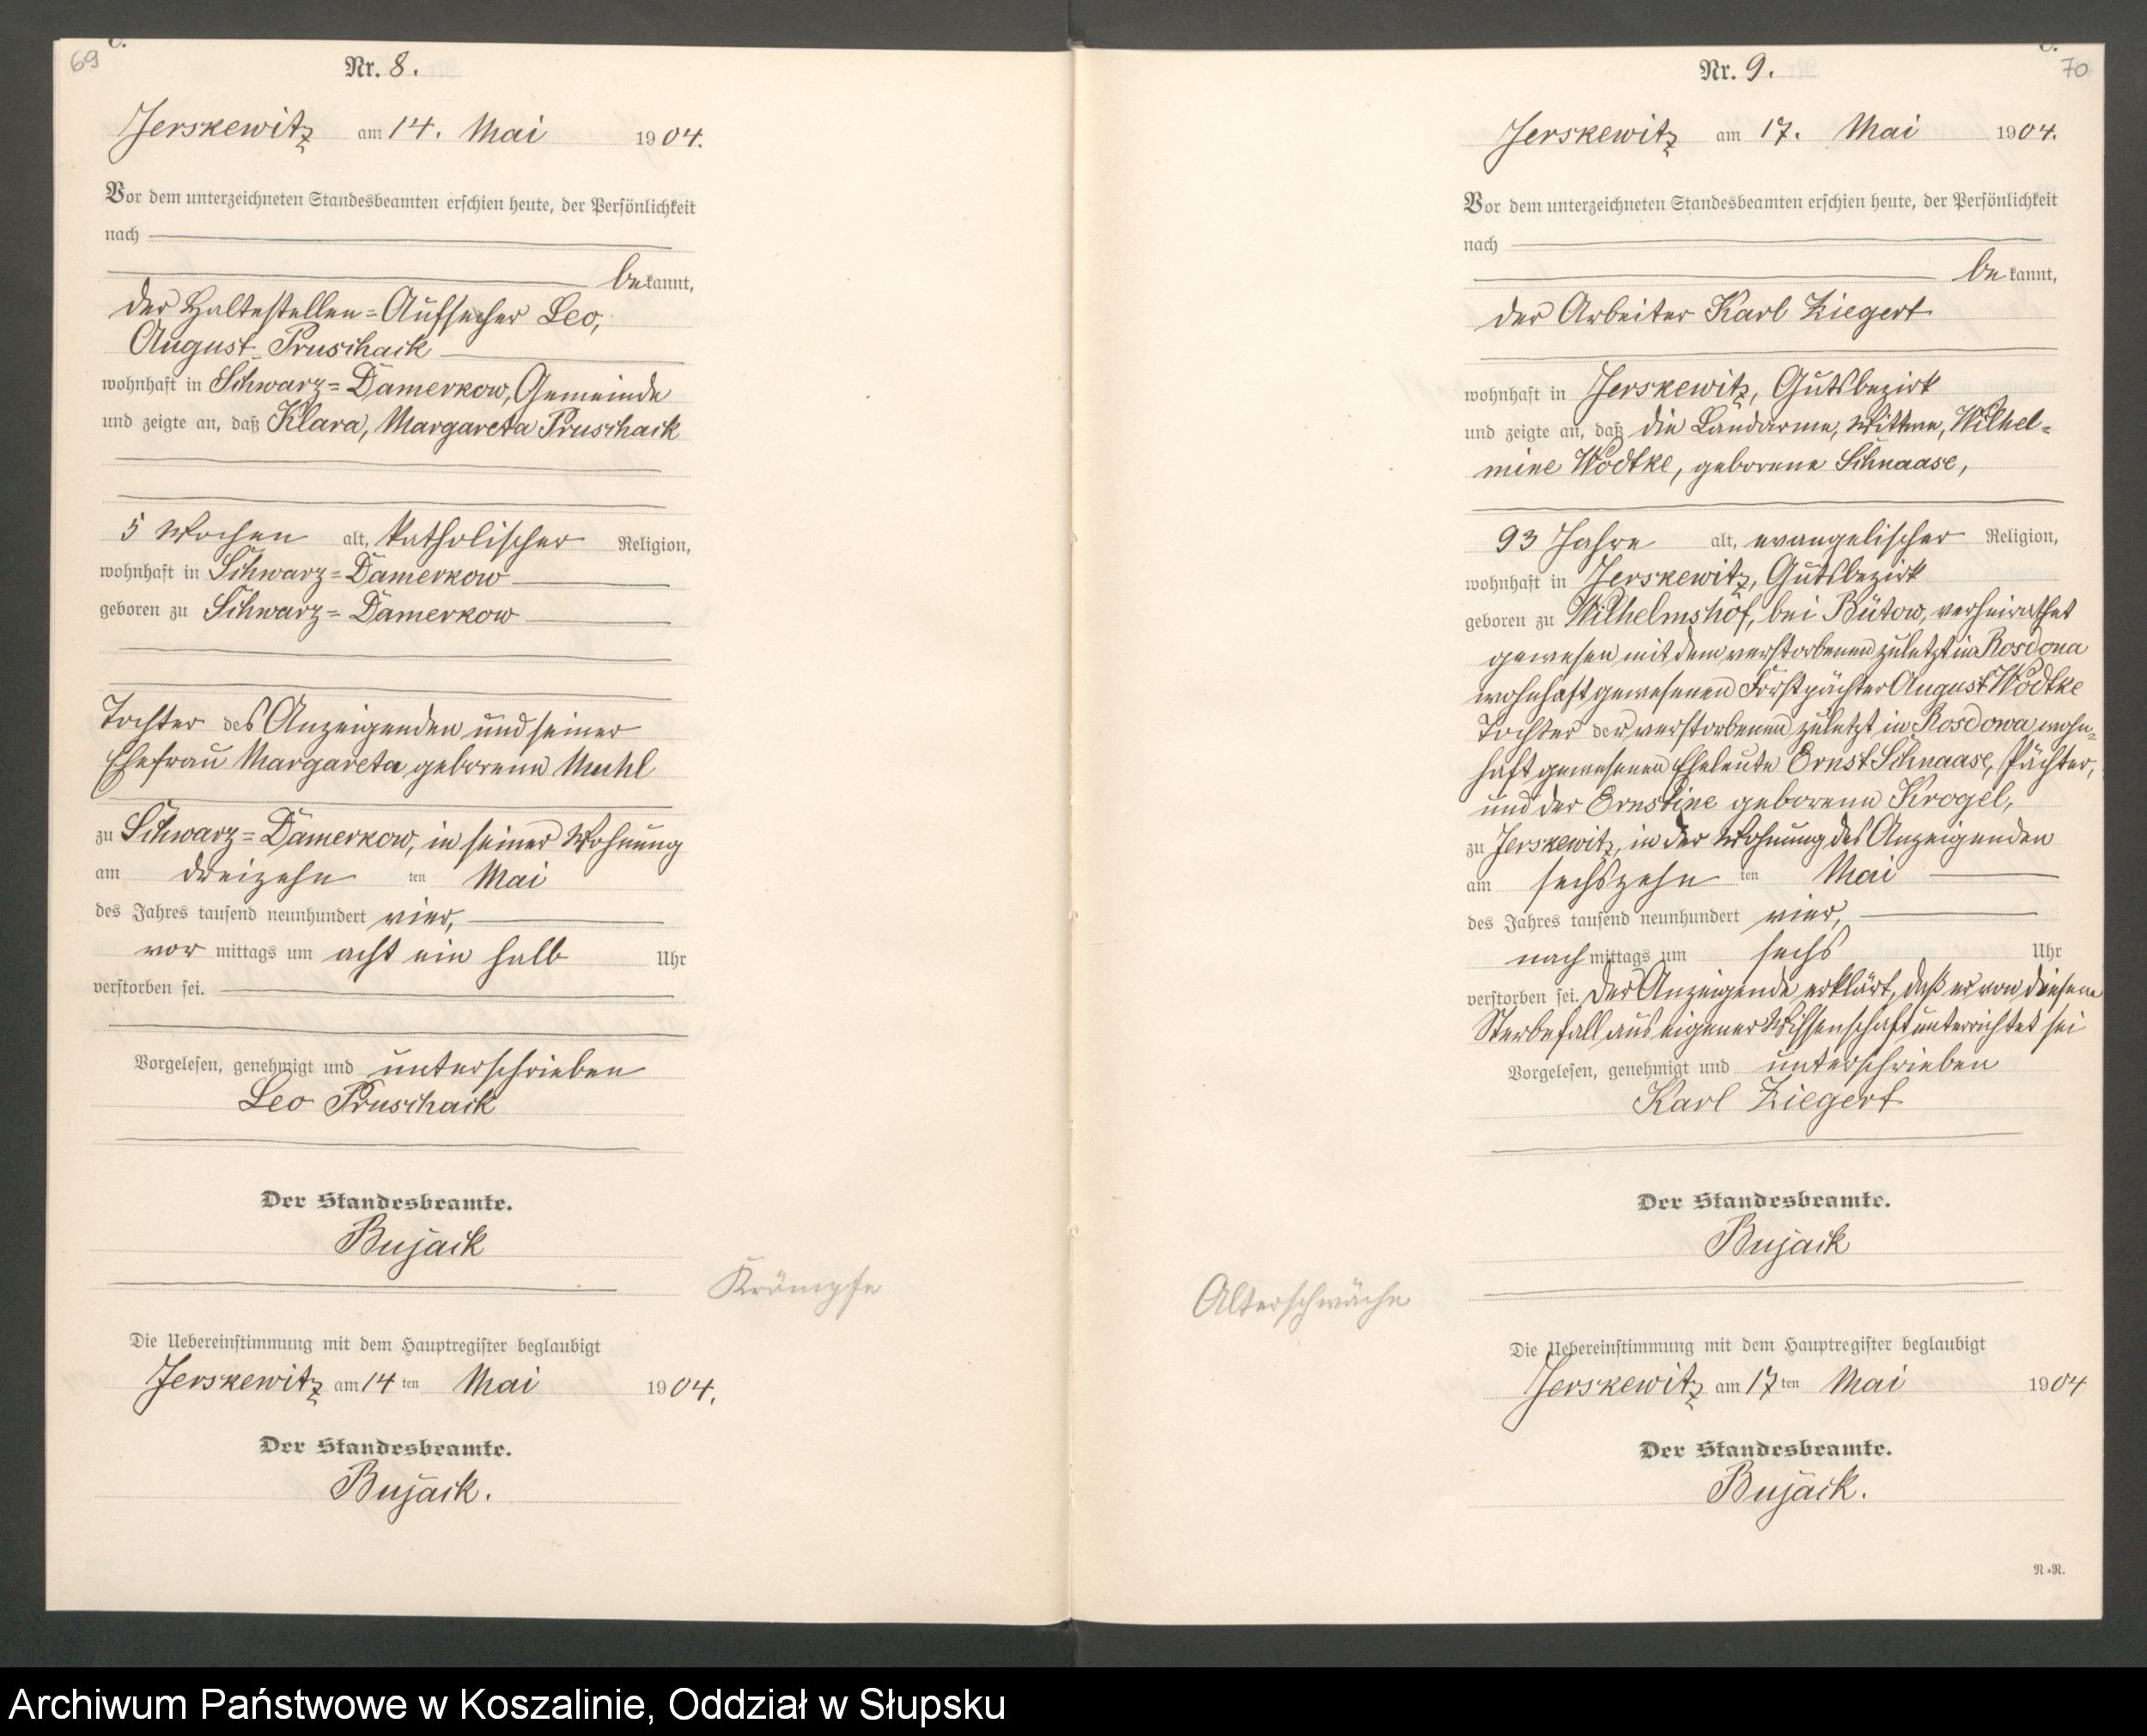 69
C.
Nr. 8.
Jerskewitz am 14. Mai 1904.
Vor dem unterzeichneten Standesbeamten erschien heute, der Persönlichkeit
nach
bekannt,
der Haltestellen=Aufseher Leo,
August Pruschack
wohnhaft in Schwarz=Damerkow, Gemeinde
und zeigte an, daß Klara, Margareta Pruschack
5 Wochen alt, katholischer Religion,
wohnhaft in Schwarz=Damerkow
geboren zu Schwarz=Damerkow
Tochter des Anzeigenden und seiner
Ehefrau Margareta, geborene Muhl
zu Schwarz=Damerkow, in seiner Wohnung
am dreizehn ten Mai
des Jahres tausend neunhundert vier,
vor mittags um acht ein halb Uhr
verstorben sei.
Vorgelesen, genehmigt und unterschrieben
Leo Pruschack
Der Standesbeamte.
Bujack
Krämpfe
Die Uebereinstimmung mit dem Hauptregister beglaubigt
Jerskewitz am 14 ten Mai 1904.
Der Standesbeamte.
Bujack.
C.
70
Nr. 9.
Jerskewitz am 17. Mai 1904.
Vor dem unterzeichneten Standesbeamten erschien heute, der Persönlichkeit
nach
bekannt,
der Arbeiter Karl Ziegert
wohnhaft in Jerskewitz, Gutsbezirk
und zeigte an, daß die Landarme, Wittwe, Wilhel=
mine Wodtke, geborene Schnaase,
93 Jahre alt, evangelischer Religion,
wohnhaft in Jerskewitz, Gutsbezirk
geboren zu Wilhelmshof, bei Bütow, verheirathet
gewesen mit dem verstorbenen zuletzt in
wohnhaft gewesenen Forstpächter August Wodtke
Tochter der verstorbenen zuletzt in Rosdowa wohn=
haft gewesenen Eheleute Ernst Schnaase, Pächter,
und der Ernstine geborene Krogel,
zu Jerskewitz, in der Wohnung des Anzeigenden
am sechszehn ten Mai
des Jahres tausend neunhundert vier,
nach mittags um sechs Uhr
verstorben sei. Der Anzeigende erklärt, daß er von diesem
Sterbefall aus eigener Wissenschaft unterrichtet sei
Vorgelesen, genehmigt und unterschrieben
Karl Ziegert
Der Standesbeamte.
Bujack
Alterschwäche
Die Uebereinstimmung mit dem Hauptregister beglaubigt
Jerskewitz am 17 ten Mai 1904
Der Standesbeamte.
Bujack.
N.=N.
Archiwum Państwowe w Koszalinie, Oddział w Słupsku